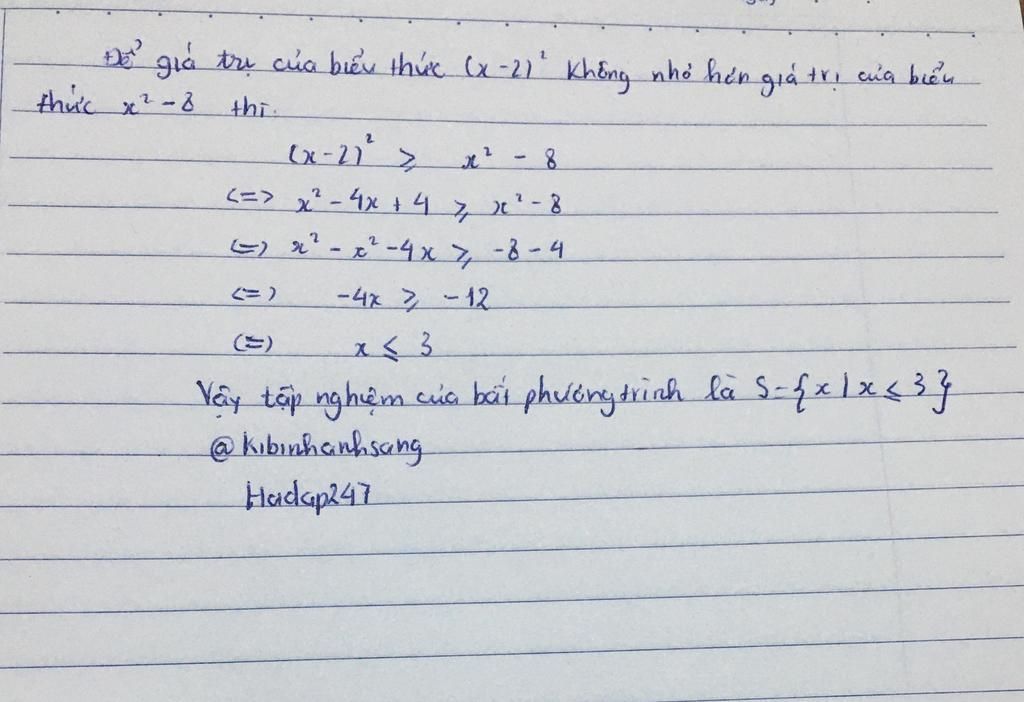 Để giá trị của biểu thức (x-2)² không nhỏ hơn giá trị của biểu
thức x² - 8 thì.
(x-2)² ⩾ x² - 8
<=> x² - 4x + 4 ⩾ x² - 8
<=> x² - x² - 4x ⩾ -8 - 4
<=> -4x ⩾ -12
<=> x ⩽ 3
Vậy tập nghiệm của bất phương trình là S={x | x ⩽ 3}
@kibinhanhsang
Hadap247